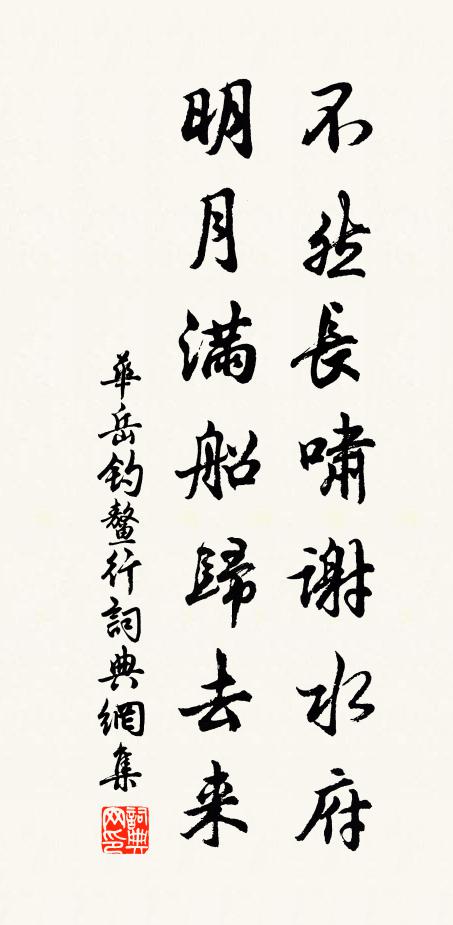 不然長嘯謝水府
明月滿船歸去来
華岳釣鰲行詞典網集
詞典网印